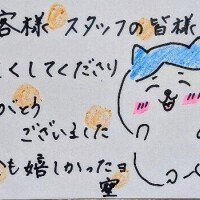 客様 スタッフの皆様
くしてくださり
がとう
ございました
も嬉しかったヨ